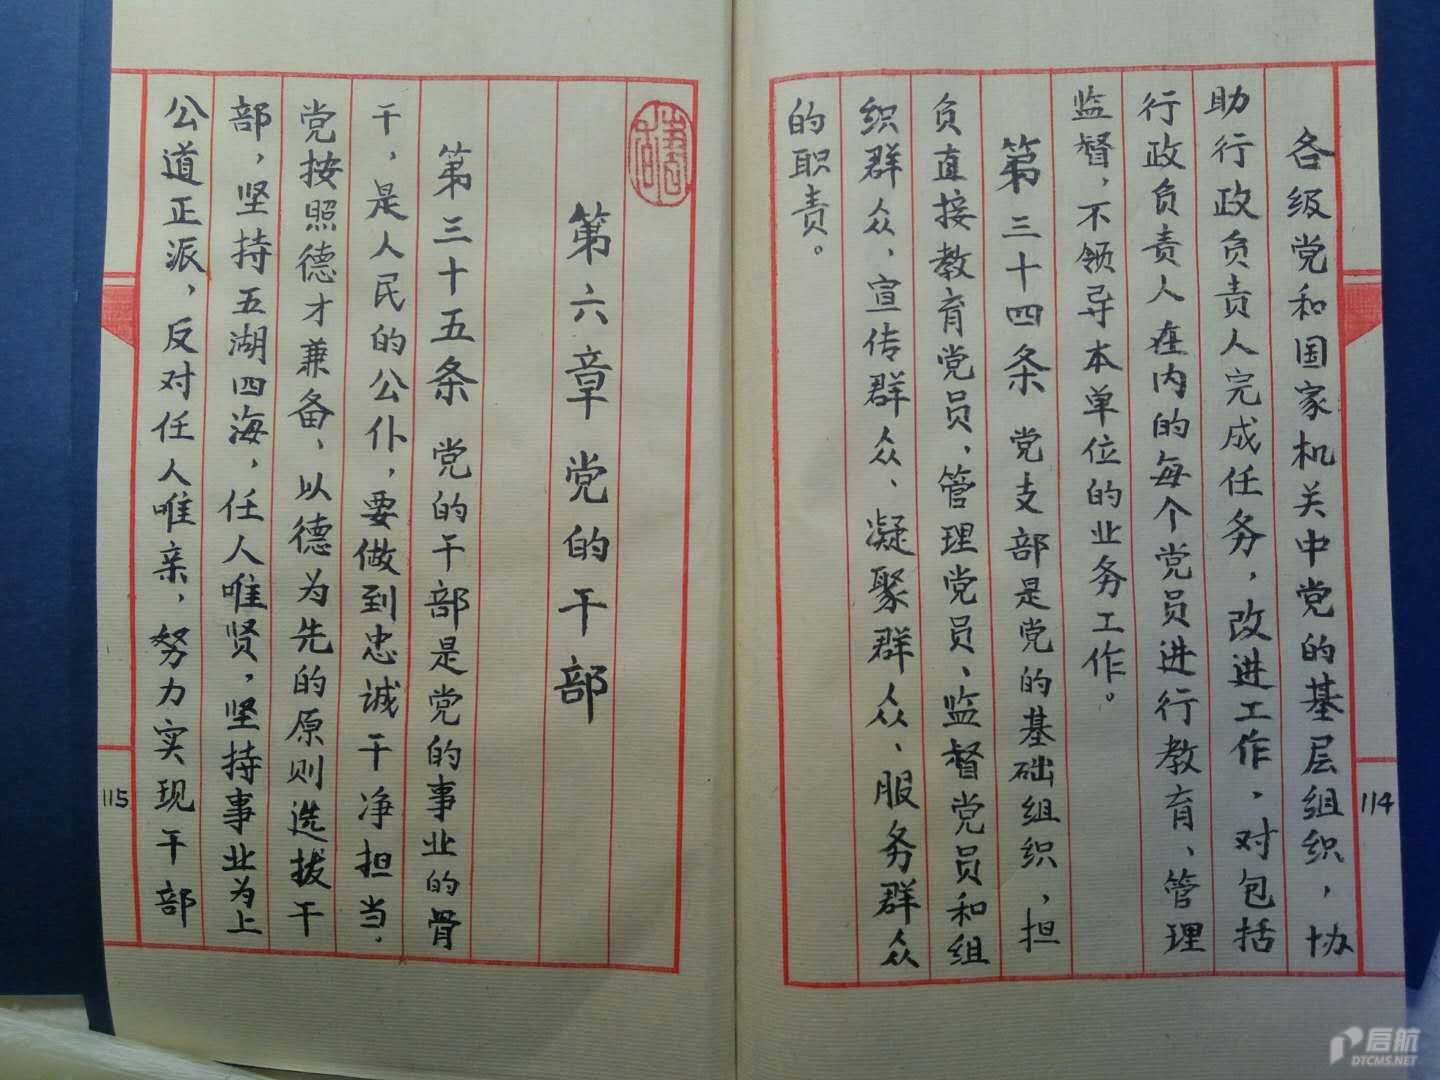 各级党和国家机关中党的基层组织，协
助行政负责人完成任务，改进工作，对包括
行政负责人在内的每个党员进行教育、管理
监督，不领导本单位的业务工作。
第三十四条 党支部是党的基础组织，担
负直接教育党员、管理党员、监督党员和组
织群众、宣传群众、凝聚群众、服务群众
的职责。
114
第六章 党的干部
第三十五条 党的干部是党的事业的骨
干，是人民的公仆，要做到忠诚干净担当。
党按照德才兼备、以德为先的原则选拔干
部，坚持五湖四海，任人唯贤，坚持事业为上
公道正派，反对任人唯亲，努力实现干部
115
启航
DTCMS.NET